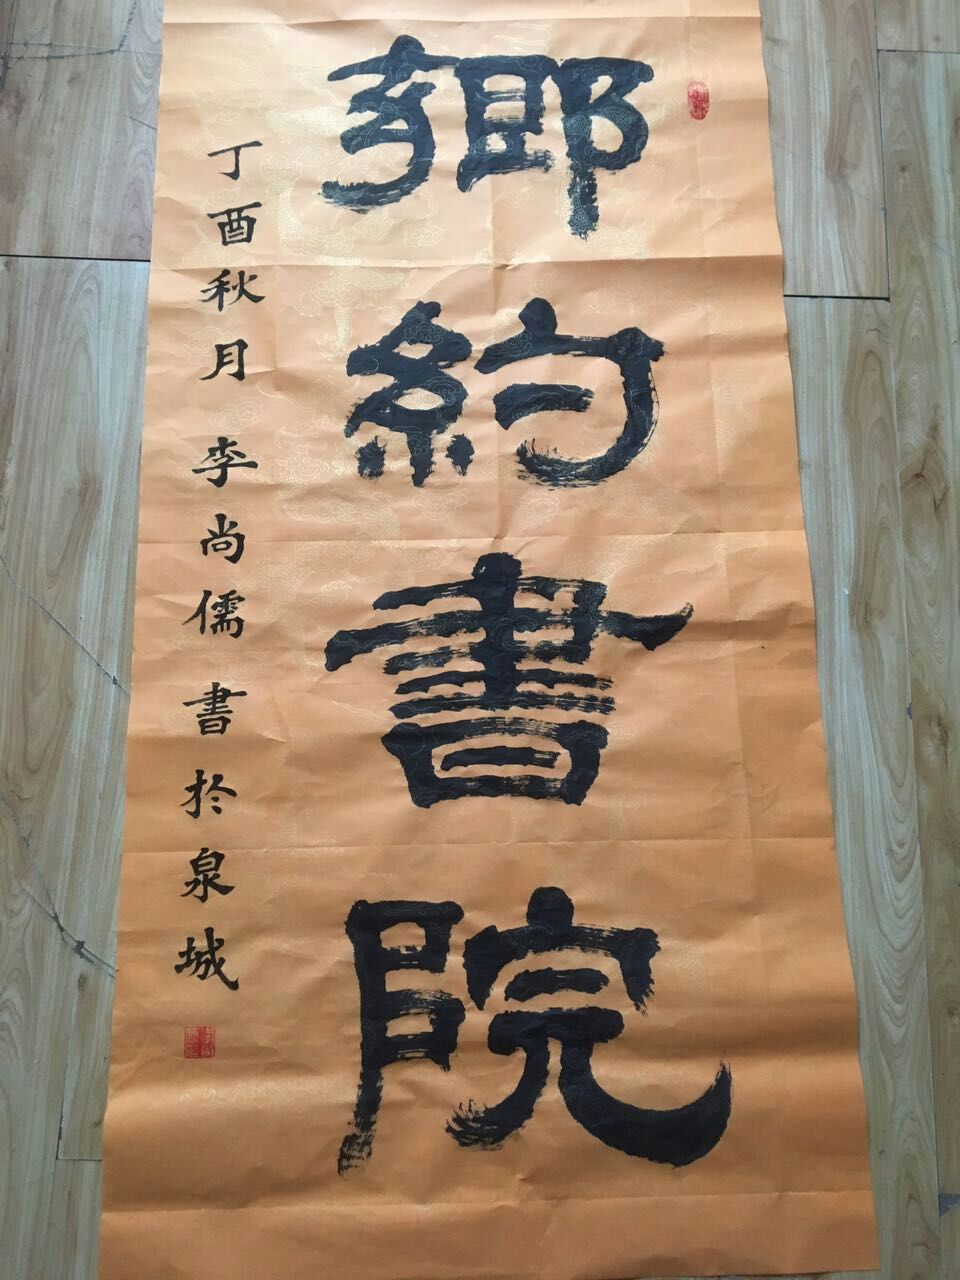 鄉約書院
丁酉秋月李尚儒書於泉城